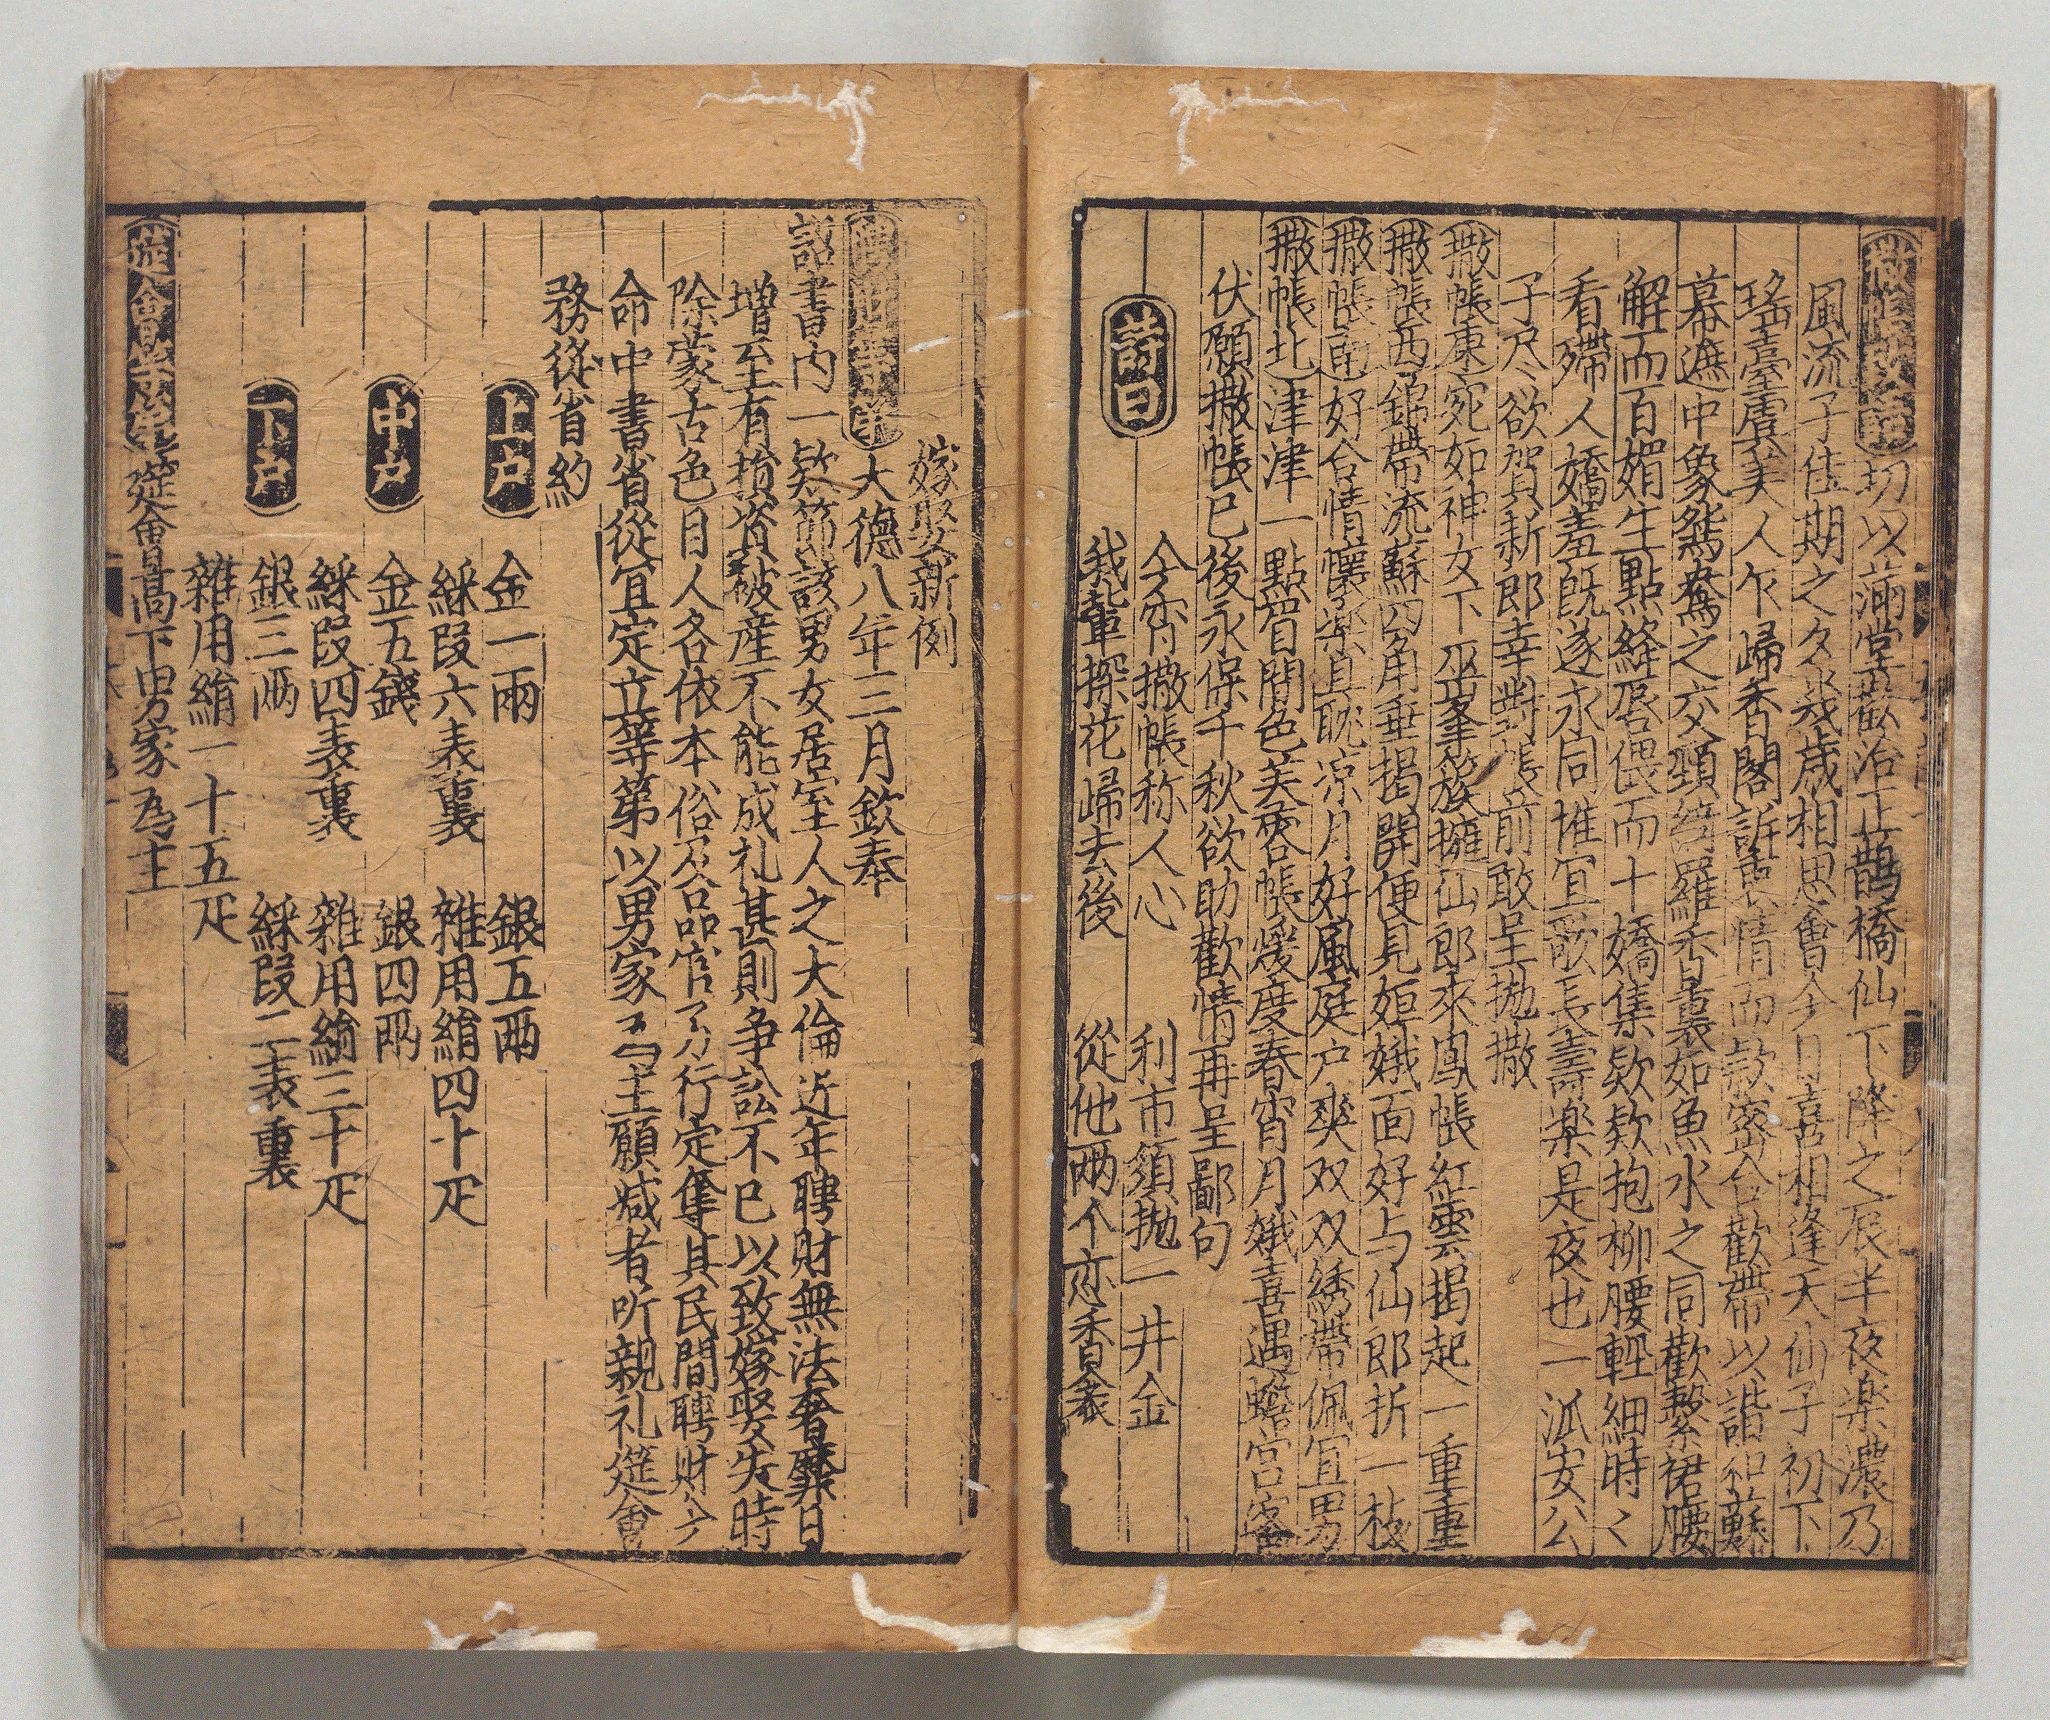 切以滿堂歡洽正鵲橋仙下降之辰半夜楽濃乃
風流子佳期之夕幾歲相思會今日喜相逢天仙子初下
瑤臺虞美人乍歸香閣訴衷情而款密合歡帶以諧和蘇
幕遮中象鴛鴦之交頸綺羅香裏如魚水之同歡繫裙腰
解而百媚生點絳唇偎而十嬌集欵欵抱柳腰輕細時〻
看殢人嬌羞既遂永同惟宜歌長壽楽是夜也一派安公
子尽欲賀新郎幸對帳前敢呈拋撒
撒帳東宛如神女下巫峯簇擁仙郎來鳳帳紅雲揭起一重重
撒帳西錦帶流蘇四角垂揭開便見姮娥面好与仙郎折一枝
撒帳南好合情懷楽且耽凉月好風庭户爽双双綉帶佩宜男
撒帳北津津一點眉間色芙蓉帳煖度春宵月娥喜遇蟾宮客
伏願撒帳已後永保千秋欲助歡情再呈鄙句
詩曰
今宵撒帳称人心 利市須拋一井金
我輩探花歸去後 從他兩个恋香衾
嫁娶新例
大德八年三月欽奉
詔書内一欵節該男女居室人之大倫近年聘財無法奢靡日
增至有損資破産不能成礼甚則争訟不已以致嫁娶失時
除蒙古色目人各依本俗及品官另行定奪其民間聘財今
命中書省從宜定立等第以男家為主願减者听親礼筵會
務從省約
上户 金一兩 銀五兩
綵段六表裏 雜用絹四十疋
中户 金五錢 銀四兩
綵段四表裏 雜用絹三十疋
下户 銀三兩 綵段二表裏
雜用絹一十五疋
筵會高下男家為主